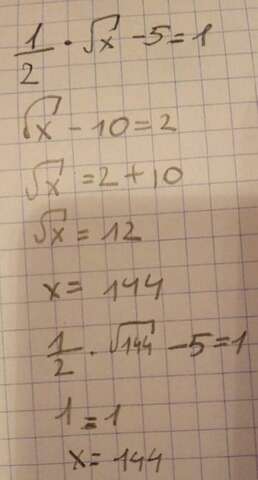 1/2 · √x - 5 = 1
√x - 10 = 2
√x = 2 + 10
√x = 12
x = 144
1/2 · √144 - 5 = 1
1 = 1
x = 144